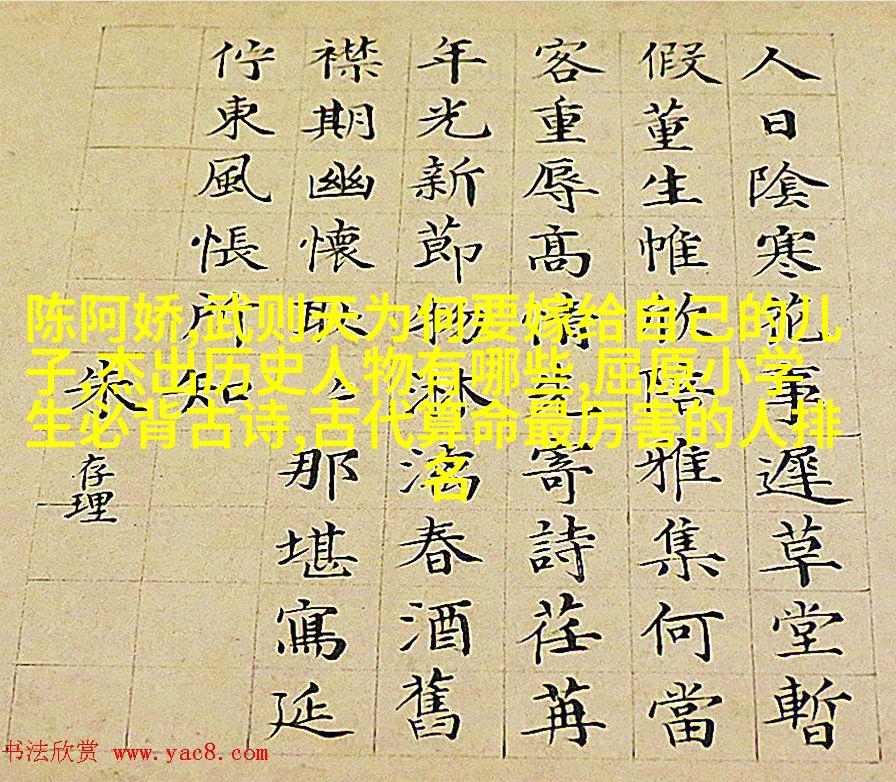 人日陰寒花事遲草堂暫
假董生帷欣陪雅集何當
客重辱高情寄詩荏苒
年光新節物淋漓春酒舊
襟期幽懷那堪寫延
佇東風悵所知
朱
存理
陈阿娇,武则天为何要嫁给自己的儿
子,杰出历史人物有哪些,屈原小学
生必背古诗,古代算命最厉害的人排
名
书法欣赏 www.yac8.com